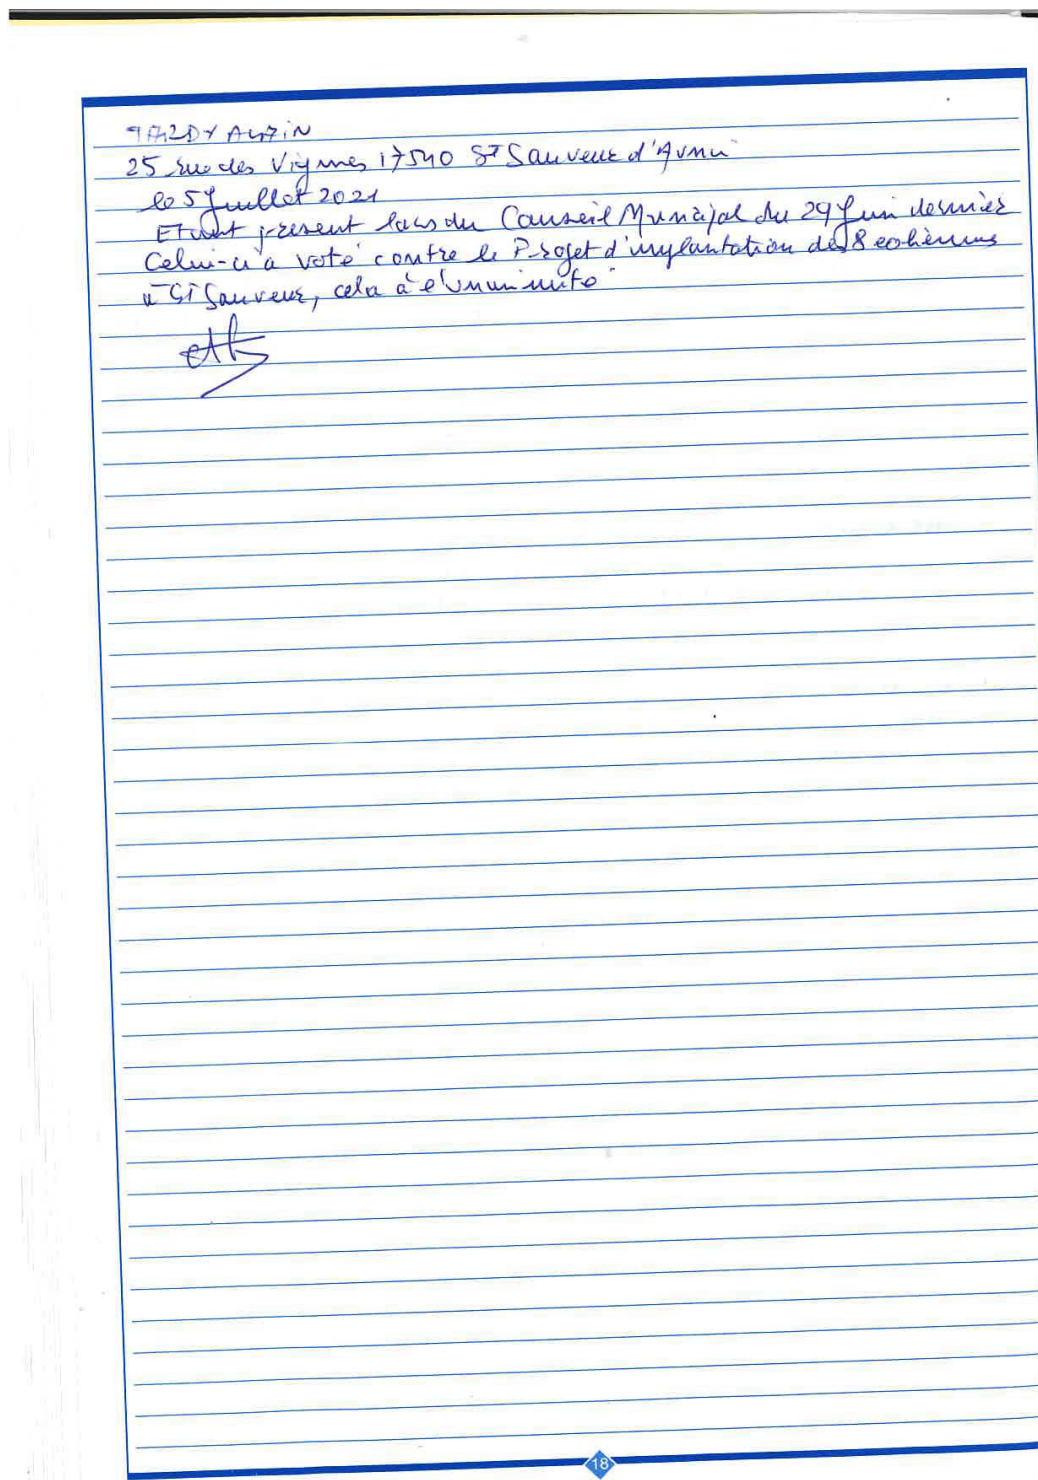 TARDY ALAIN
25 rue des Vignes 17540 St Sauveur d'Aunis
le 5 Juillet 2021
Etant présent lors du Conseil Municipal du 29 Juin dernier
Celui-ci a voté contre le Projet d'implantation des 8 eoliennes
à St Sauveur, cela à l'unanimité
18